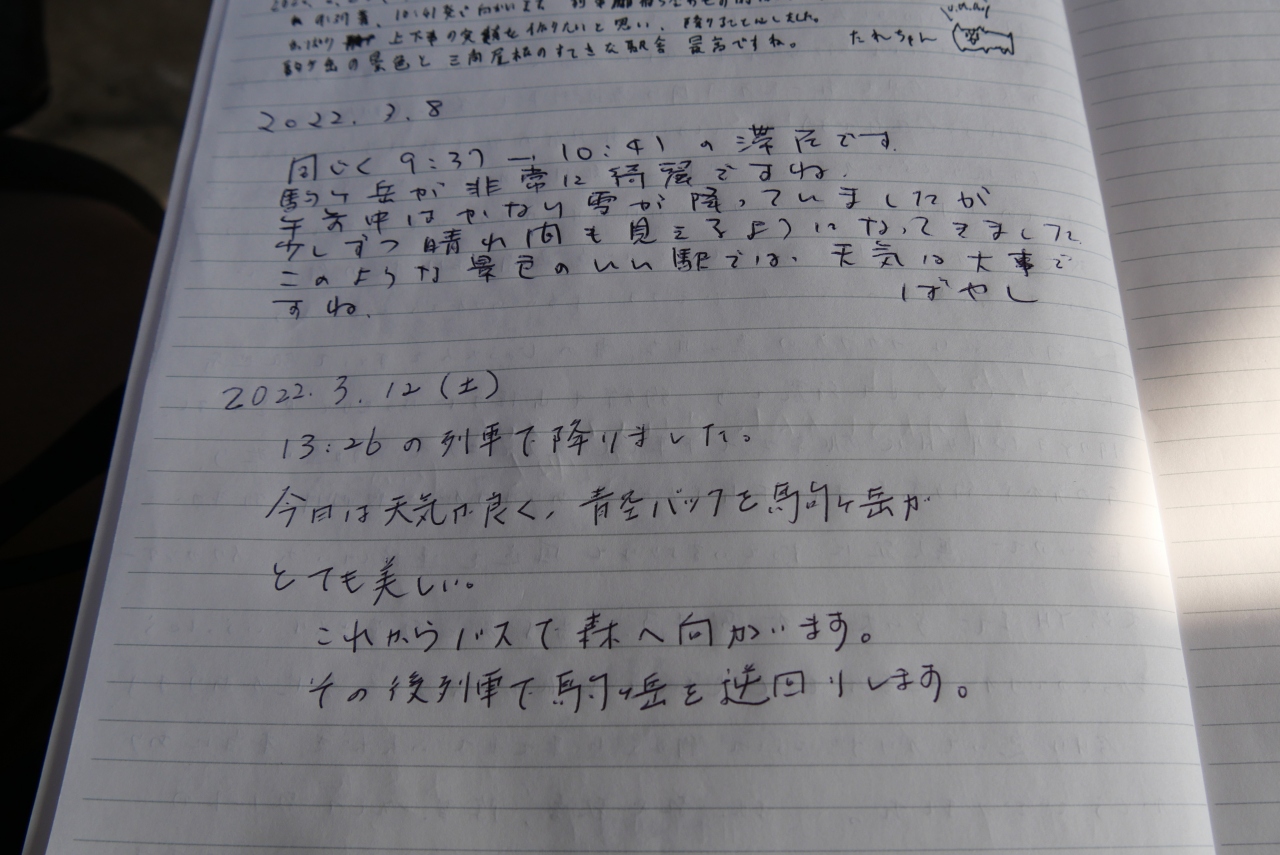 10:41発で向かいます
やっぱり 上下車の実績を作りたいと思い、降りることにしました。
駒ケ岳の景色と三角屋根のすてきな駅舎 最高ですね。 たれちゃん
2022.3.8
同じく 9:37→10:41の滞在です。
駒ケ岳が非常に綺麗ですね。
午前中はかなり雪が降っていましたが
少しずつ晴れ間も見えるようになってきました。
このような景色のいい駅では、天気は大事で
すね。 ばやし
2022.3.12(土)
13:26の列車で降りました。
今日は天気が良く、青空バックを駒ヶ岳が
とても美しい。
これからバスで森へ向かいます。
その後列車で駒ヶ岳を逆回りします。